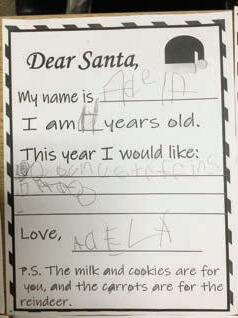 Dear Santa,
My name is Adela
I am 4 years old.
This year I would like:
Love, ADELA
P.S. The milk and cookies are for
you, and the carrots are for the
reindeer.